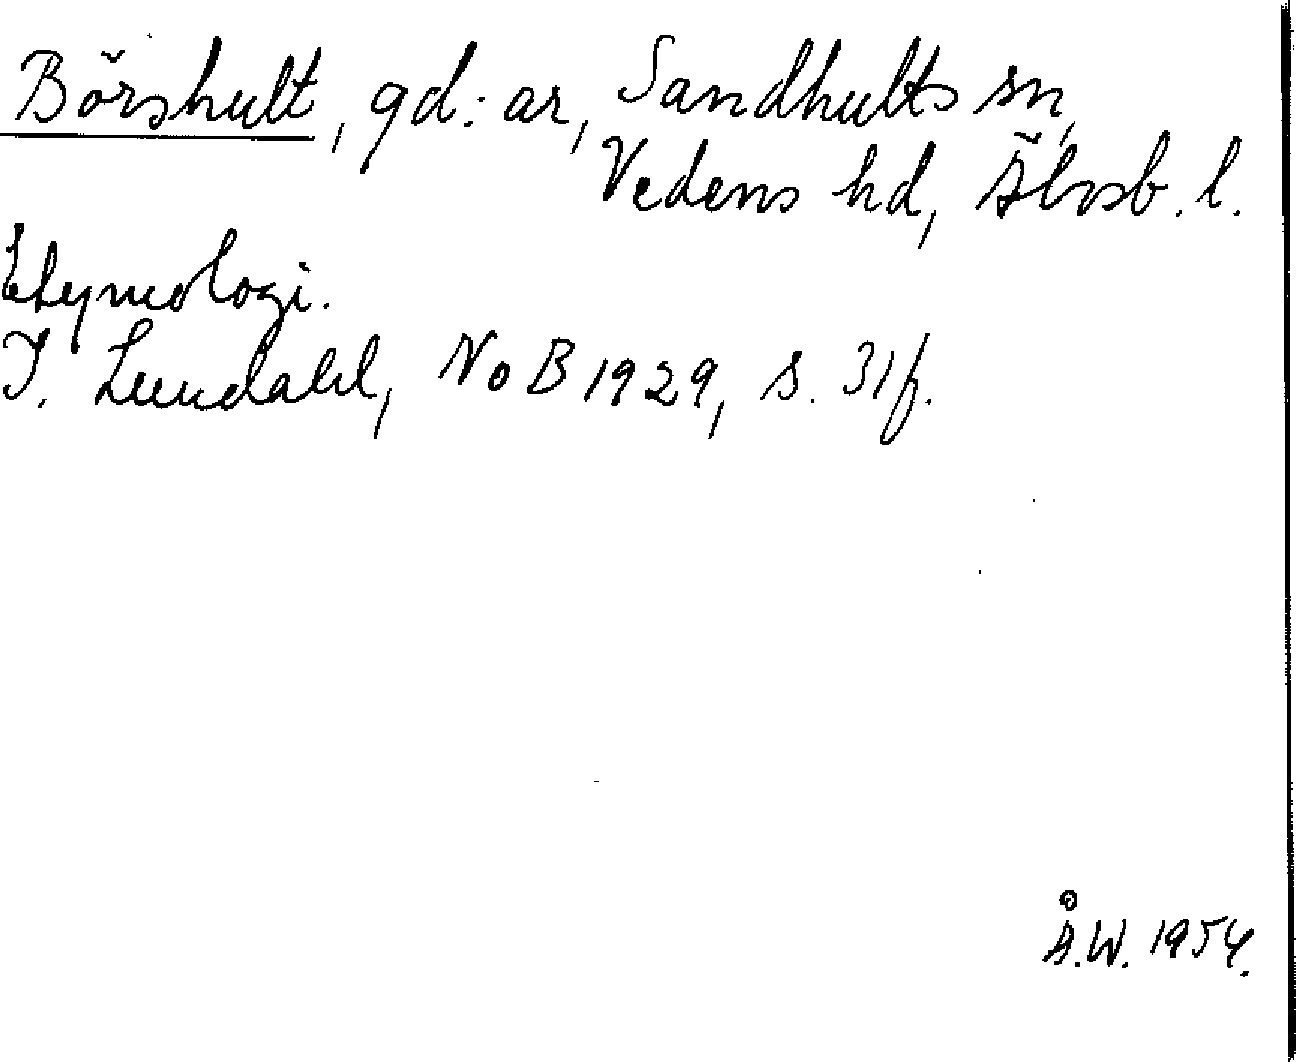 Börshult, gd:ar, Sandhults sn,
Vedens hd, Älvsb. l.
Etymologi.
I. Lundahl, NoB 1929, s. 31f.
Å.W. 1954.